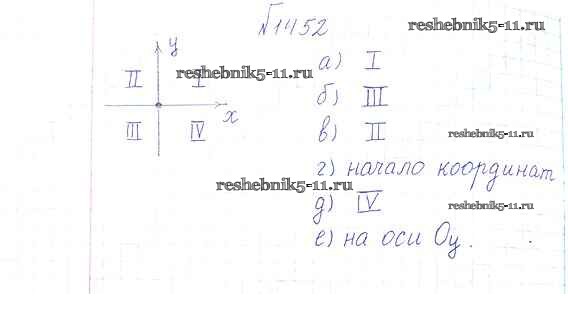 №1452
reshebnik5-11.ru
y
а) I
II I
reshebnik5-11.ru
б) III
x
III IV
в) II
reshebnik5-11.ru
г) начало координат
reshebnik5-11.ru
д) IV
reshebnik5-11.ru
е) на оси Oy.